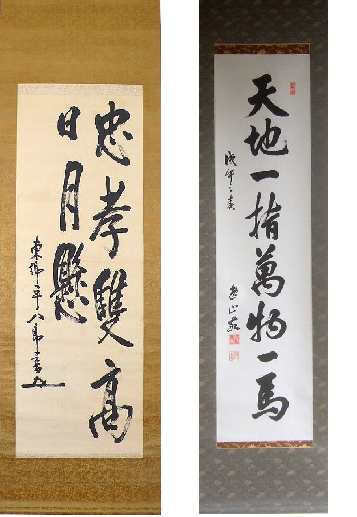 忠孝雙高
日月懸
東郷平八郎書
天地一指萬物一馬
戊午之春